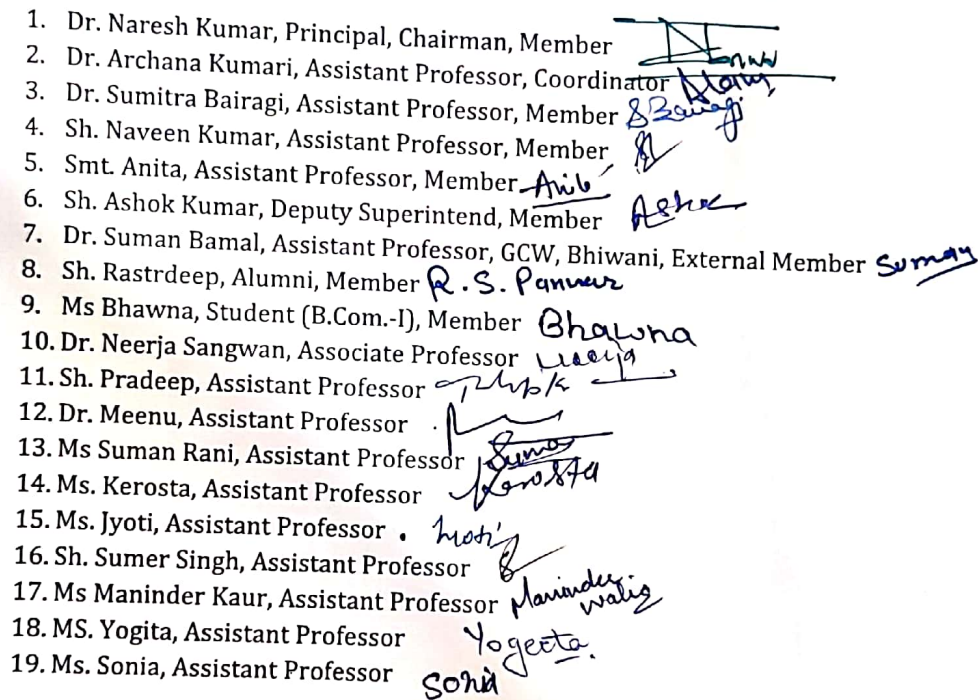 1. Dr. Naresh Kumar, Principal, Chairman, Member
2. Dr. Archana Kumari, Assistant Professor, Coordinator
3. Dr. Sumitra Bairagi, Assistant Professor, Member SBairagi
4. Sh. Naveen Kumar, Assistant Professor, Member
5. Smt. Anita, Assistant Professor, Member
6. Sh. Ashok Kumar, Deputy Superintend, Member Ashok
7. Dr. Suman Bamal, Assistant Professor, GCW, Bhiwani, External Member Suman
8. Sh. Rastrdeep, Alumni, Member R.S. Panwar
9. Ms Bhawna, Student (B.Com.-I), Member Bhawna
10. Dr. Neerja Sangwan, Associate Professor Neerja
11. Sh. Pradeep, Assistant Professor
12. Dr. Meenu, Assistant Professor
13. Ms Suman Rani, Assistant Professor Suman
14. Ms. Kerosta, Assistant Professor Kerosta
15. Ms. Jyoti, Assistant Professor
16. Sh. Sumer Singh, Assistant Professor
17. Ms Maninder Kaur, Assistant Professor Maninder walia
18. MS. Yogita, Assistant Professor Yogeeta.
19. Ms. Sonia, Assistant Professor Sonia